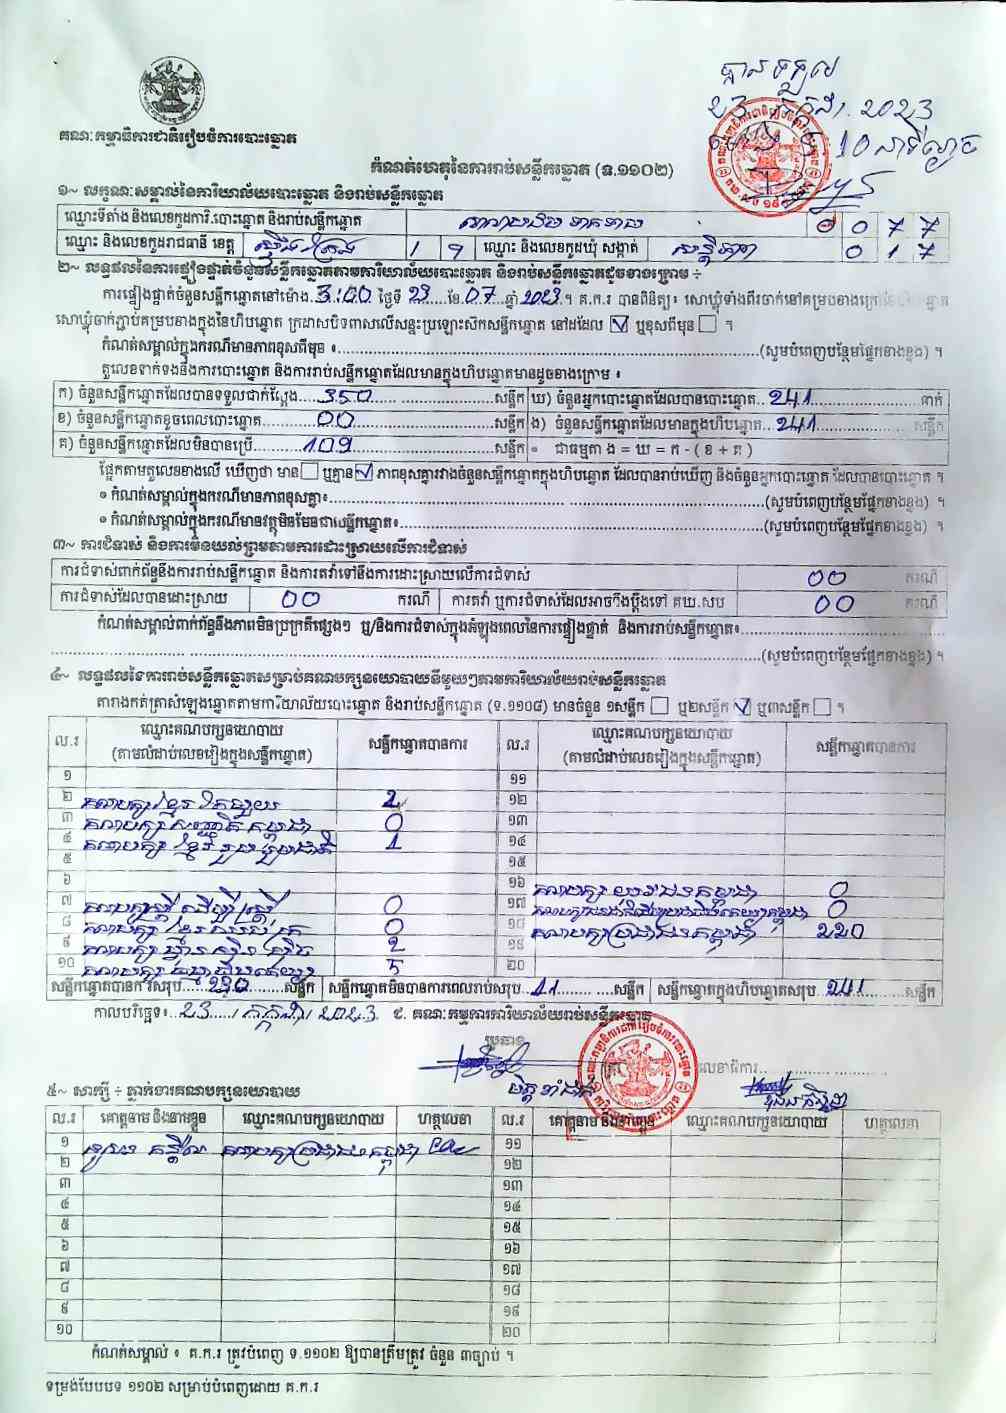 បានទទួល
23 កក្កដា. 2023
10 នាទីល្ងាច
គណៈកម្មាធិការជាតិរៀបចំការបោះឆ្នោត
កំណត់ហេតុនៃការរាប់សន្លឹកឆ្នោត (ទ.១១០២)
១~ លក្ខណៈសម្គាល់នៃការិយាល័យបោះឆ្នោត និងរាប់សន្លឹកឆ្នោត
ឈ្មោះទីតាំង និងលេខកូដការិ.បោះឆ្នោត និងរាប់សន្លឹកឆ្នោត 0 0 7 7
ឈ្មោះ និងលេខកូដរាជធានី ខេត្ត ស្ទឹងត្រែង 1 9 ឈ្មោះ និងលេខកូដឃុំ សង្កាត់ សន្តិភាព 0 1 7
២~ លទ្ធផលនៃការផ្ទៀងផ្ទាត់ចំនួនសន្លឹកឆ្នោតតាមការិយាល័យបោះឆ្នោត និងរាប់សន្លឹកឆ្នោតដូចខាងក្រោម ÷
ការផ្ទៀងផ្ទាត់ចំនួនសន្លឹកឆ្នោតនៅម៉ោង 3:00 ថ្ងៃទី 23 ខែ 07 ឆ្នាំ 2023។ គ.ក.រ បានពិនិត្យ៖ សោឃ្លុំទាំងពីរចាក់នៅគម្របខាងក្រៅ
សោឃ្លុំចាក់ភ្ជាប់គម្របខាងក្នុងនៃហិបឆ្នោត ក្រដាសបិទពាសលើសន្ទះប្រឡោះស៊កសន្លឹកឆ្នោត នៅដដែល ☑ ឬខុសពីមុន ☐ ។
កំណត់សម្គាល់ក្នុងករណីមានភាពខុសពីមុន ៖..........(សូមបំពេញបន្ថែមផ្នែកខាងខ្នង) ។
តួលេខទាក់ទងនឹងការបោះឆ្នោត និងការរាប់សន្លឹកឆ្នោតដែលមានក្នុងហិបឆ្នោតមានដូចខាងក្រោម ៖
ក) ចំនួនសន្លឹកឆ្នោតដែលបានទទួលជាក់ស្តែង 350 សន្លឹក ឃ) ចំនួនអ្នកបោះឆ្នោតដែលបានបោះឆ្នោត 241 នាក់
ខ) ចំនួនសន្លឹកឆ្នោតខូចពេលបោះឆ្នោត 00 សន្លឹក ង) ចំនួនសន្លឹកឆ្នោតដែលមានក្នុងហិបឆ្នោត 241 សន្លឹក
គ) ចំនួនសន្លឹកឆ្នោតដែលមិនបានប្រើ 109 សន្លឹក ៖ ជាធម្មតា ង = ឃ = ក - ( ខ + គ )
ផ្អែកតាមតួលេខខាងលើ ឃើញថា មាន ☐ ឬគ្មាន ☑ ភាពខុសគ្នារវាងចំនួនសន្លឹកឆ្នោតក្នុងហិបឆ្នោត ដែលបានរាប់ឃើញ និងចំនួនអ្នកបោះឆ្នោត ដែលបានបោះឆ្នោត ។
៙ កំណត់សម្គាល់ក្នុងករណីមានភាពខុសគ្នា៖..........(សូមបំពេញបន្ថែមផ្នែកខាងខ្នង) ។
៙ កំណត់សម្គាល់ក្នុងករណីមានវត្ថុមិនមែនជាសន្លឹកឆ្នោត៖..........(សូមបំពេញបន្ថែមផ្នែកខាងខ្នង) ។
៣~ ការជំទាស់ និងការមិនយល់ព្រមតាមការដោះស្រាយលើការជំទាស់
ការជំទាស់ពាក់ព័ន្ធនឹងការរាប់សន្លឹកឆ្នោត និងការតវ៉ាទៅនឹងការដោះស្រាយលើការជំទាស់ 00 ករណី
ការជំទាស់ដែលបានដោះស្រាយ 00 ករណី ការតវ៉ា ឬការជំទាស់ដែលអាចប្តឹងទៅ គឃ.សប 00 ករណី
កំណត់សម្គាល់ពាក់ព័ន្ធនឹងភាពមិនប្រក្រតីផ្សេងៗ ឬ/និងការជំទាស់ក្នុងអំឡុងពេលនៃការផ្ទៀងផ្ទាត់ និងការរាប់សន្លឹកឆ្នោត៖..........
..........(សូមបំពេញបន្ថែមផ្នែកខាងខ្នង) ។
៤~ លទ្ធផលនៃការរាប់សន្លឹកឆ្នោតសម្រាប់គណបក្សនយោបាយនីមួយៗតាមការិយាល័យរាប់សន្លឹកឆ្នោត
តារាងកត់ត្រាសំឡេងឆ្នោតតាមការិយាល័យបោះឆ្នោត និងរាប់សន្លឹកឆ្នោត (ទ.១១០៨) មានចំនួន ១សន្លឹក ☐ ឬ២សន្លឹក ☑ ឬ៣សន្លឹក ☐ ។
ល.រ ឈ្មោះគណបក្សនយោបាយ (តាមលំដាប់លេខរៀងក្នុងសន្លឹកឆ្នោត) សន្លឹកឆ្នោតបានការ ល.រ ឈ្មោះគណបក្សនយោបាយ (តាមលំដាប់លេខរៀងក្នុងសន្លឹកឆ្នោត) សន្លឹកឆ្នោតបានការ
១ ១១
២ គណបក្ស ខ្មែរ 2 ១២
៣ គណបក្ស សញ្ជាតិកម្ពុជា 0 ១៣
៤ គណបក្ស ខ្មែររួបរួមជាតិ 1 ១៤
៥ ១៥
៦ ១៦ គណបក្ស យុវជនកម្ពុជា 0
៧ គណបក្សស្ត្រីដើម្បីស្ត្រី 0 ១៧ 0
៨ គណបក្ស ខ្មែរឈប់ក្រ 0 ១៨ គណបក្សប្រជាជនកម្ពុជា 220
៩ គណបក្ស ហ៊្វុនស៊ិនប៉ិច 2 ១៩
១០ គណបក្ស 5 ២០
សន្លឹកឆ្នោតបានការសរុប 230 សន្លឹក សន្លឹកឆ្នោតមិនបានការពេលរាប់សរុប 11 សន្លឹក សន្លឹកឆ្នោតក្នុងហិបឆ្នោតសរុប 241 សន្លឹក
កាលបរិច្ឆេទ៖ 23 / កក្កដា / 2023 ៩. គណៈកម្មការការិយាល័យរាប់សន្លឹកឆ្នោត
ប្រធាន
លេខាធិការ
៥~ សាក្សី ÷ ភ្នាក់ងារគណបក្សនយោបាយ
ល.រ គោត្តនាម និងនាមខ្លួន ឈ្មោះគណបក្សនយោបាយ ហត្ថលេខា ល.រ គោត្តនាម និងនាមខ្លួន ឈ្មោះគណបក្សនយោបាយ ហត្ថលេខា
១ គណបក្សប្រជាជនកម្ពុជា ១១
២ ១២
៣ ១៣
៤ ១៤
៥ ១៥
៦ ១៦
៧ ១៧
៨ ១៨
៩ ១៩
១០ ២០
កំណត់សម្គាល់ ៖ គ.ក.រ ត្រូវបំពេញ ទ.១១០២ ឱ្យបានត្រឹមត្រូវ ចំនួន ៣ច្បាប់ ។
ទម្រង់បែបបទ ១១០២ សម្រាប់បំពេញដោយ គ.ក.រ